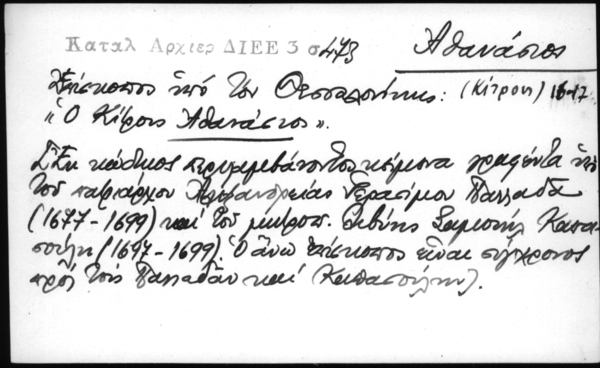 Καταλ Αρχιερ ΔΙΕΕ 3 σ473 Ἀθανάσιος
Ἐπίσκοπος ὑπό τόν Θεσσαλονίκης: (Κίτρους) 16-17
"Ὁ Κίτρους Ἀθανάσιος".
[Ἐκ κώδικος περιλαμβάνοντος κείμενα γραφέντα ὑπό
τοῦ πατριάρχου Ἀλεξανδρείας Γερασίμου Παλλαδᾶ
(1677-1699) καί τοῦ μητροπ. Λιβύης Σαμουήλ Καπα-
σούλη (1697-1699). Ὁ ἄνω ἐπίσκοπος εἶναι σύγχρονος
πρός τούς Παλλαδᾶν καί Καπασούλην].